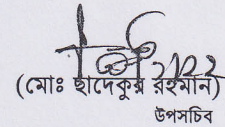 (মোঃ ছাদেকুর রহমান)
উপসচিব